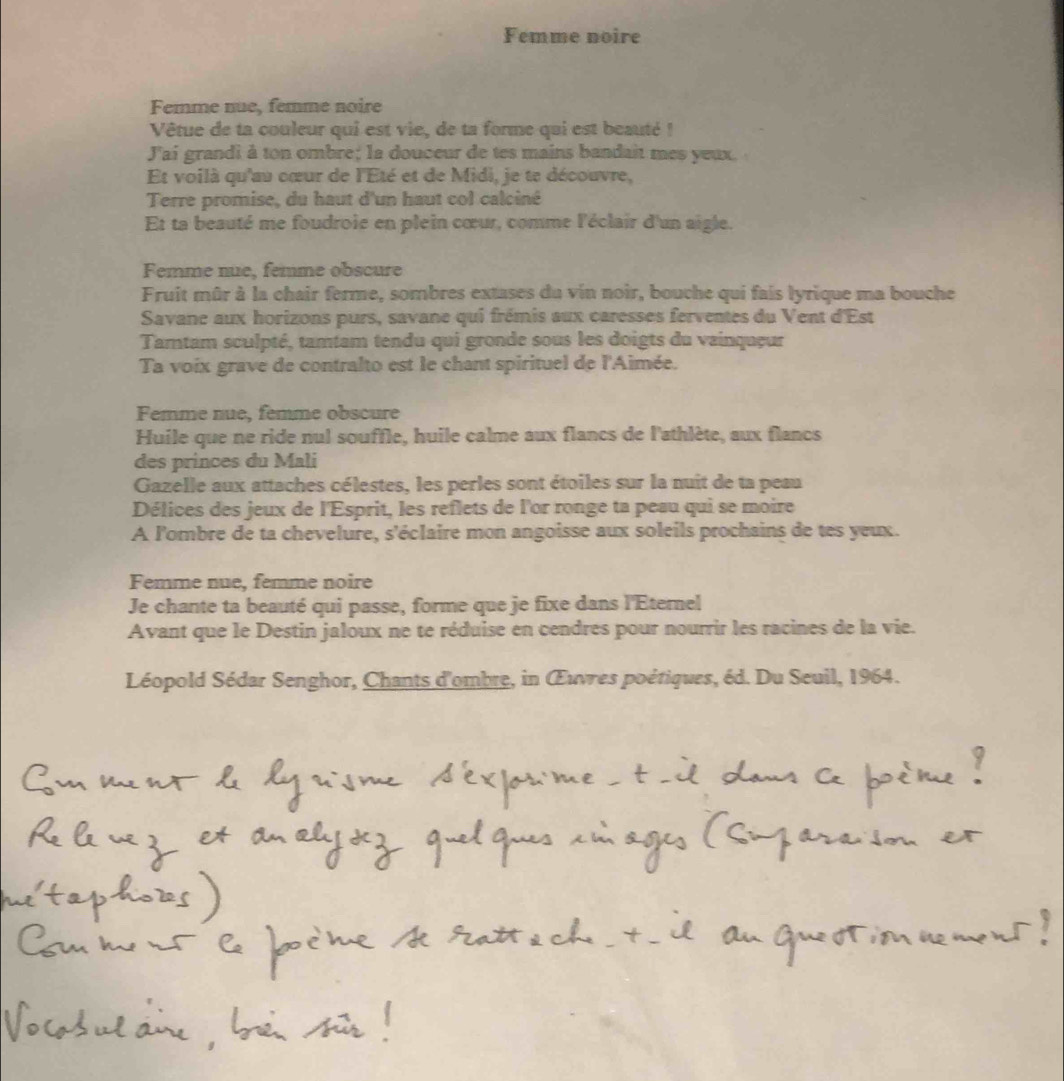 Femme noire
Femme nue, femme noire
Vêtue de ta couleur qui est vie, de ta forme qui est beauté !
J'ai grandi à ton ombre; la douceur de tes mains bandait mes yeux.
Et voilà qu'au cœur de l'Eté et de Midi, je te découvre,
Terre promise, du haut d'un haut col calciné
Et ta beauté me foudroie en plein cœur, comme l'éclair d'un aigle.
Femme nue, femme obscure
Fruit mûr à la chair ferme, sombres extases du vin noir, bouche qui fais lyrique ma bouche
Savane aux horizons purs, savane qui frémis aux caresses ferventes du Vent d'Est
Tamtam sculpté, tamtam tendu qui gronde sous les doigts du vainqueur
Ta voix grave de contralto est le chant spirituel de l'Aimée.
Femme nue, femme obscure
Huile que ne ride nul souffle, huile calme aux flancs de l'athlète, aux flancs
des princes du Mali
Gazelle aux attaches célestes, les perles sont étoiles sur la nuit de ta peau
Délices des jeux de l'Esprit, les reflets de l'or ronge ta peau qui se moire
A l'ombre de ta chevelure, s'éclaire mon angoisse aux soleils prochains de tes yeux.
Femme nue, femme noire
Je chante ta beauté qui passe, forme que je fixe dans l'Eternel
Avant que le Destin jaloux ne te réduise en cendres pour nourrir les racines de la vie.
Léopold Sédar Senghor, Chants d'ombre, in Œuvres poétiques, éd. Du Seuil, 1964.
Comment le lyrisme s'exprime-t-il dans ce poème ?
Relevez et analysez quelques images (comparaison et
métaphores)
Comment ce poème se rattache-t-il au questionnement ?
Vocabulaire, bien sûr !